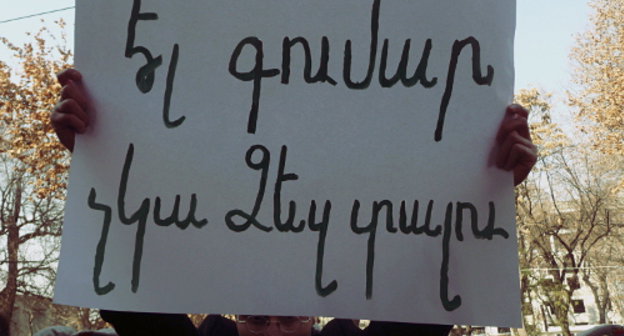 էլ գումար
չկա Ձեզ տալու